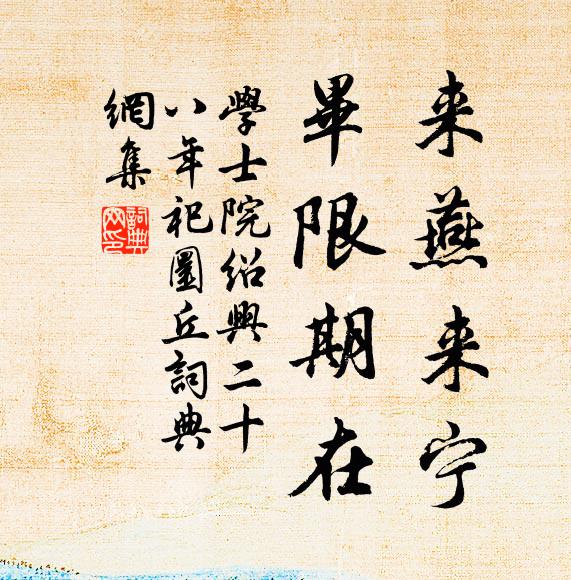 来燕来宁
畢限期在
學士院紹興二十
八年祀圜丘詞典
網集
詞典网印